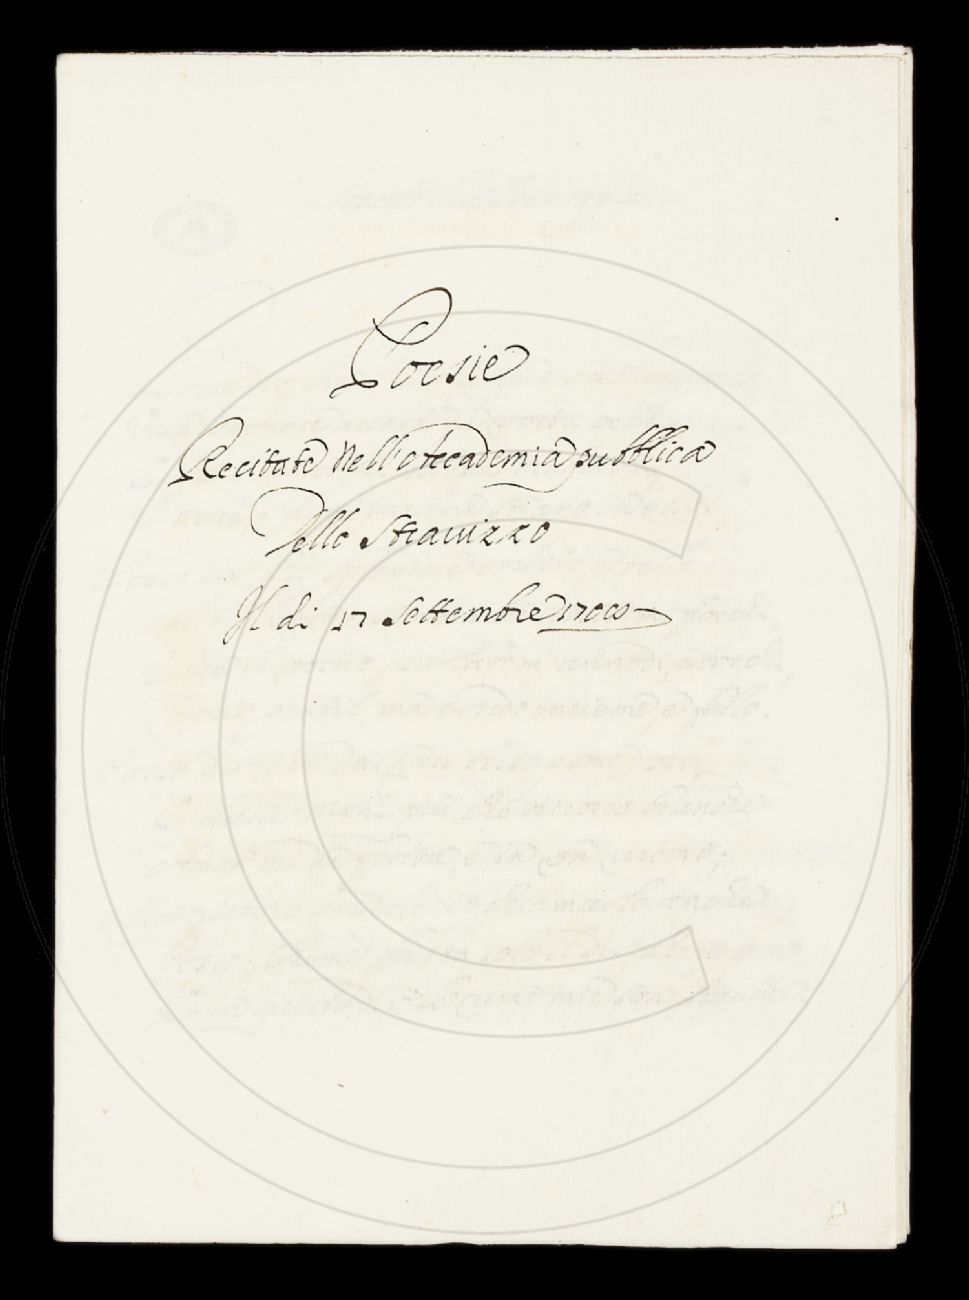 Poesie
Recitate Nell'Accademia pubblica
Dello Stravizzo
Il di 17 Settembre 1700